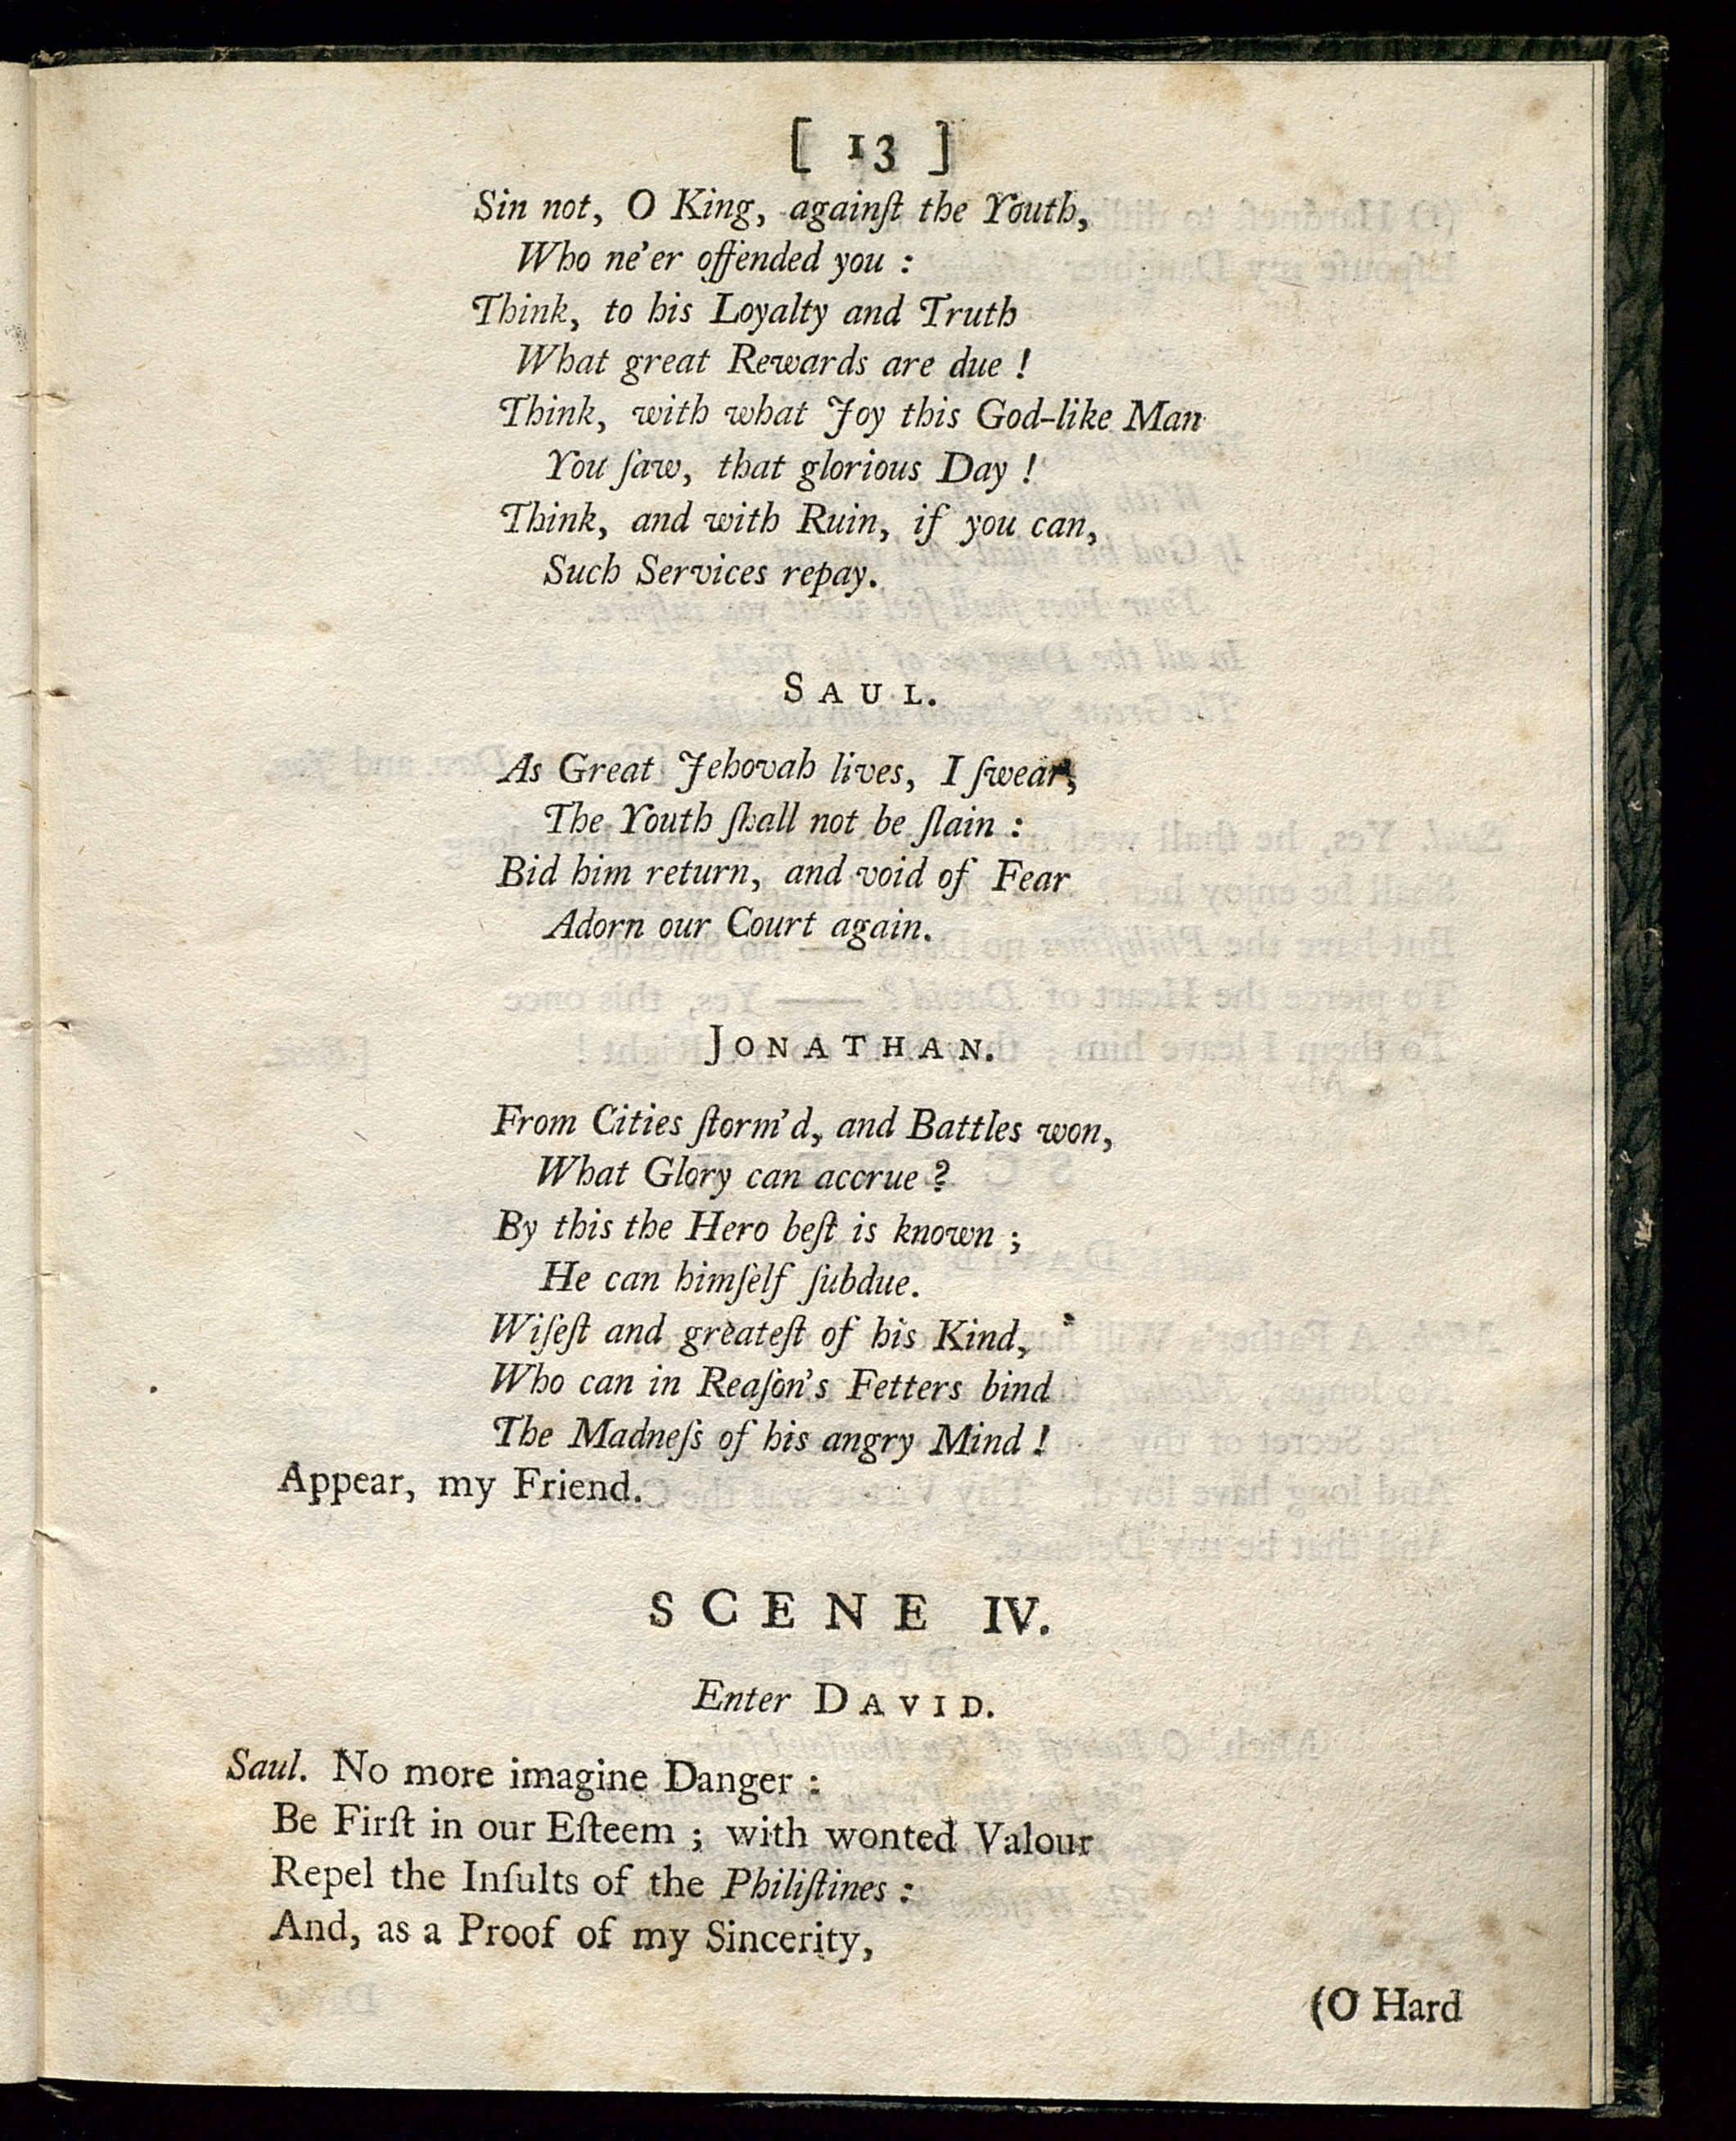 [ 13 ]
Sin not, O King, againſt the Youth,
Who ne'er offended you :
Think, to his Loyalty and Truth
What great Rewards are due !
Think, with what Joy this God-like Man
You ſaw, that glorious Day !
Think, and with Ruin, if you can,
Such Services repay.
SAUL.
As Great Jehovah lives, I ſwear,
The Youth ſhall not be ſlain :
Bid him return, and void of Fear
Adorn our Court again.
JONATHAN.
From Cities ſtorm'd, and Battles won,
What Glory can accrue ?
By this the Hero beſt is known ;
He can himſelf ſubdue.
Wiſeſt and greateſt of his Kind,
Who can in Reaſon's Fetters bind
The Madneſs of his angry Mind !
Appear, my Friend.
SCENE IV.
Enter DAVID.
Saul. No more imagine Danger :
Be Firſt in our Eſteem ; with wonted Valour
Repel the Inſults of the Philiſtines :
And, as a Proof of my Sincerity,
(O Hard